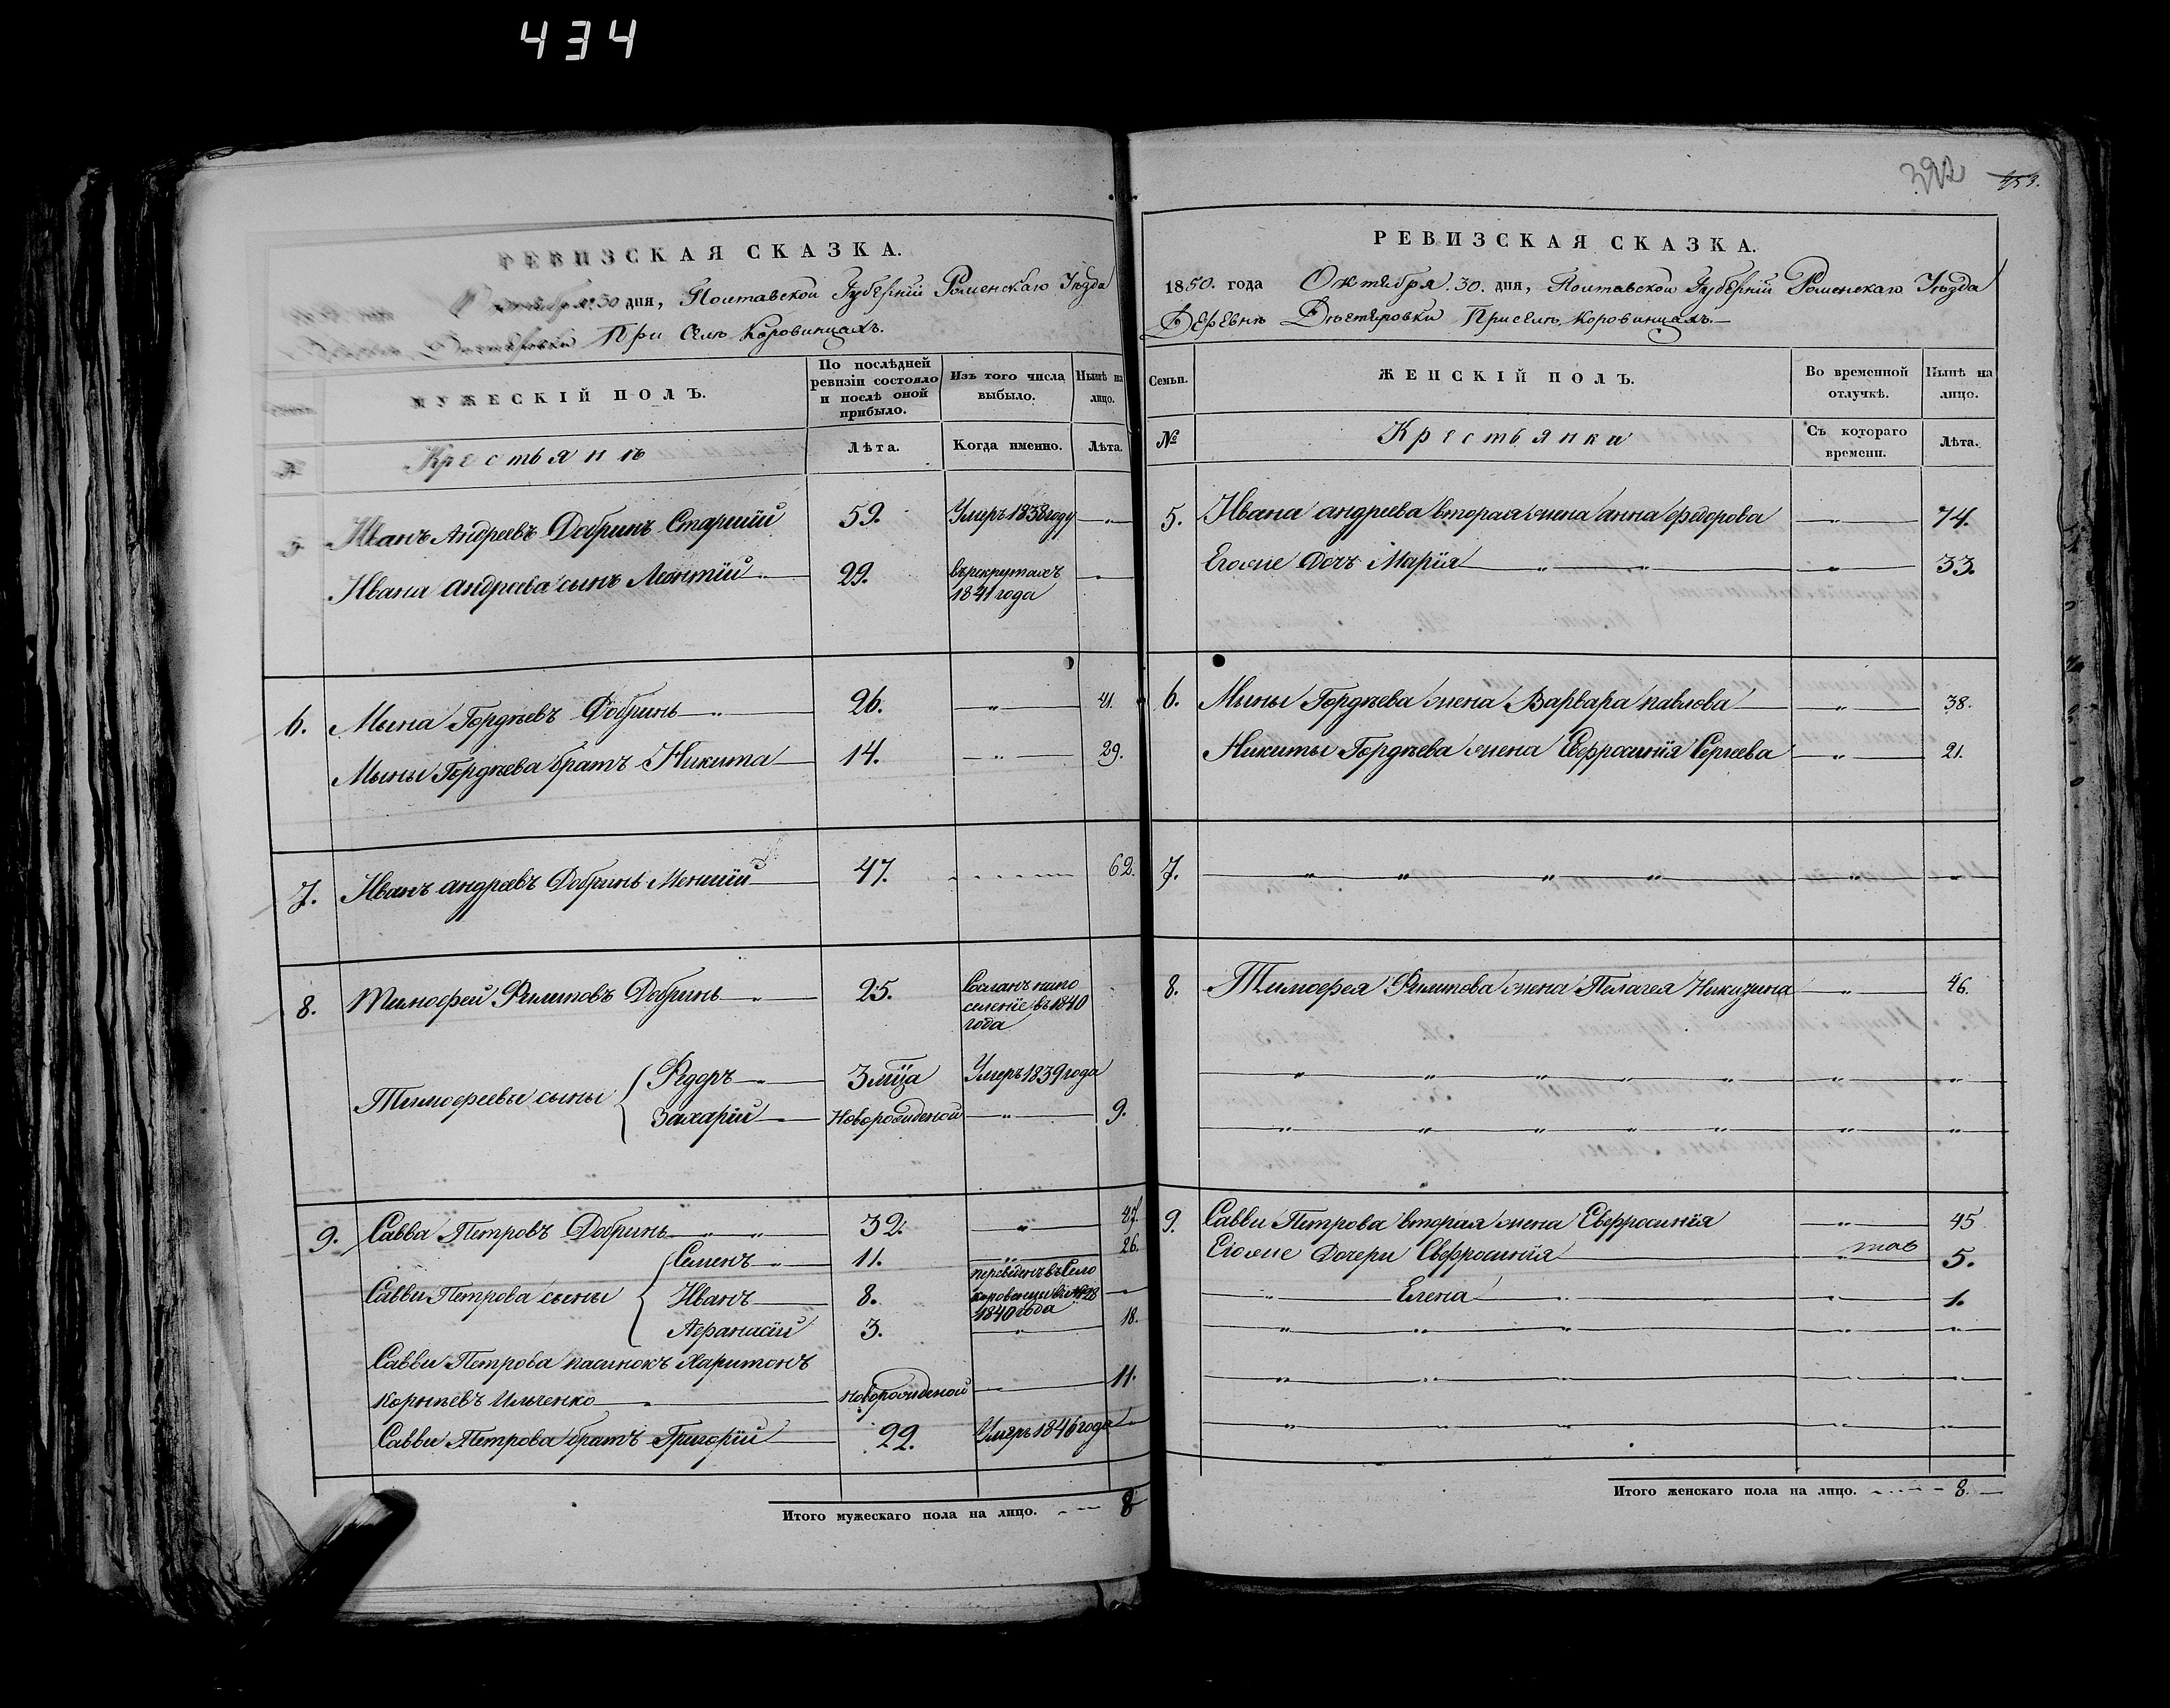 434
РЕВИЗСКАЯ СКАЗКА.
30 дня, Полтавской Губерніи Роменскаго Уѣзда
При Селѣ Коровинцахъ.
МУЖЕСКІЙ ПОЛЪ.
По послѣдней ревизіи состояло и послѣ оной прибыло.
Изъ того числа выбыло.
Нынѣ на лицо.
№
Крестьянъ
Лѣта.
Когда именно.
Лѣта.
5 Иванъ Андреевъ Добринь Старшій 59. Умеръ 1838 году
Ивана андреева сынъ Леонтій 29. въ рекрутахъ 1841 года
6. Мына Гордѣевъ Добринь 26. 41.
Мыны Гордѣева братъ Никита 14. 29.
7. Иванъ андреевъ Добринь Меншій 47. 62.
8. Тимофей Филиповъ Добринь 25. Сосланъ на по селеніе въ 1840 года
Тимофеевы сыны Федоръ 3 мца Умеръ 1839 года
Захарій Новорожденой 9.
9. Савва Петровъ Добринь 32. 47.
Савви Петрова сыны Семенъ 11. 26.
Иванъ 8. переведенъ въ Село Коровенци въ № 28 1840 года
Афанасій 3. 18.
Савви Петрова пасинокъ Харитонъ
Корнѣевъ Ильченко новорожденой 11.
Савви Петрова братъ Григорій 22. Умеръ 1846 года
Итого мужескаго пола на лицо. 8
392 453.
РЕВИЗСКАЯ СКАЗКА.
1850. года Октября. 30. дня, Полтавской Губерніи Роменскаго Уѣзда
Деревнѣ Дметировки При селѣ Коровинцахъ.
Семьи.
ЖЕНСКІЙ ПОЛЪ.
Во временной отлучкѣ.
Нынѣ на лицо.
№
Крестьянки
Съ котораго времени.
Лѣта.
5. Ивана андреева вторая жена анна федорова 74.
Егожие Дочъ Марія 33.
6. Мыны Гордѣева жена Варвара павлова 38.
Никиты Гордѣева жена Евфросинія Сергеева 21.
7.
8. Тимофея Филипова жена Пелагея Никузина 46.
9. Савви Петрова вторая жена Евфросинія 45
Егожие Дочери Евфросинія 5.
Елена 1.
Итого женскаго пола на лицо. 8.